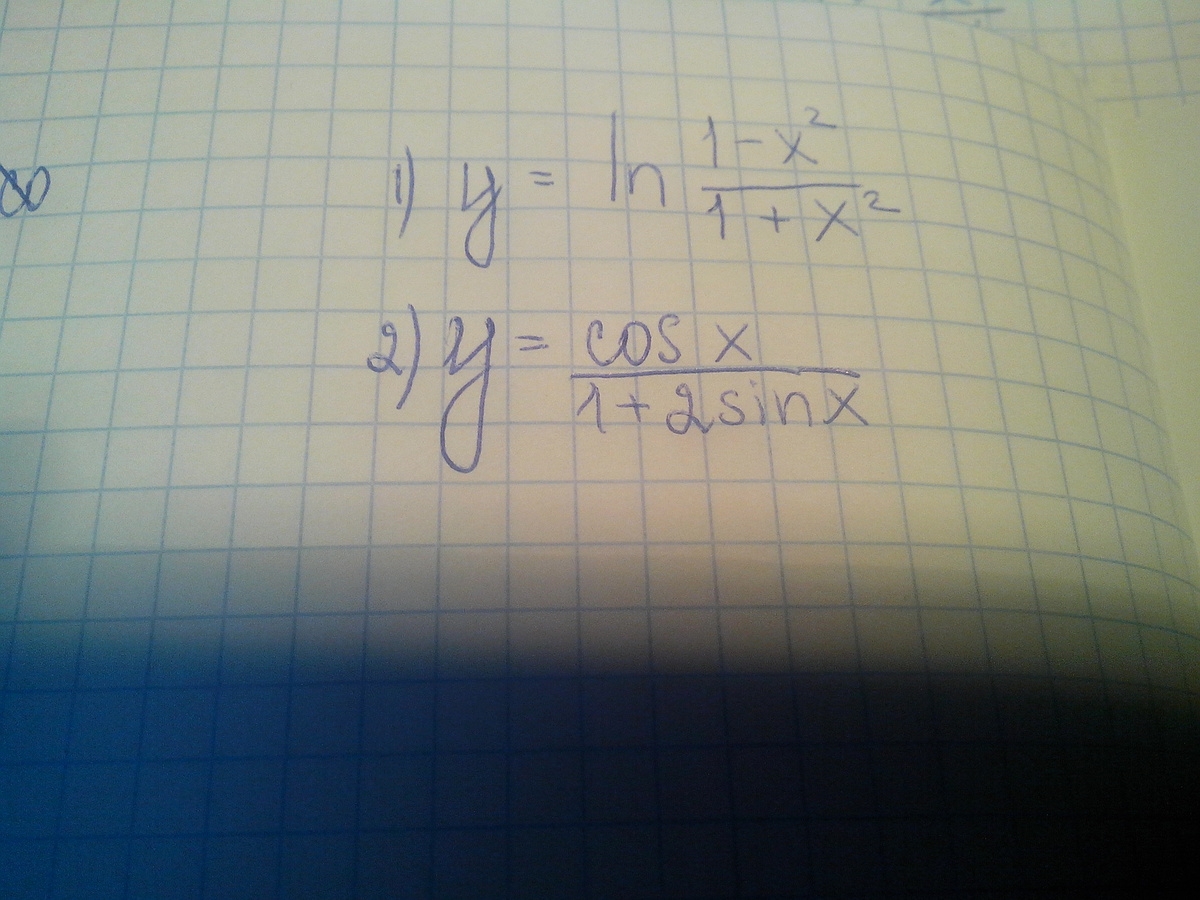 ∞
1) y = ln (1-x²)/(1+x²)
2) y = cos x/(1+2sinx)